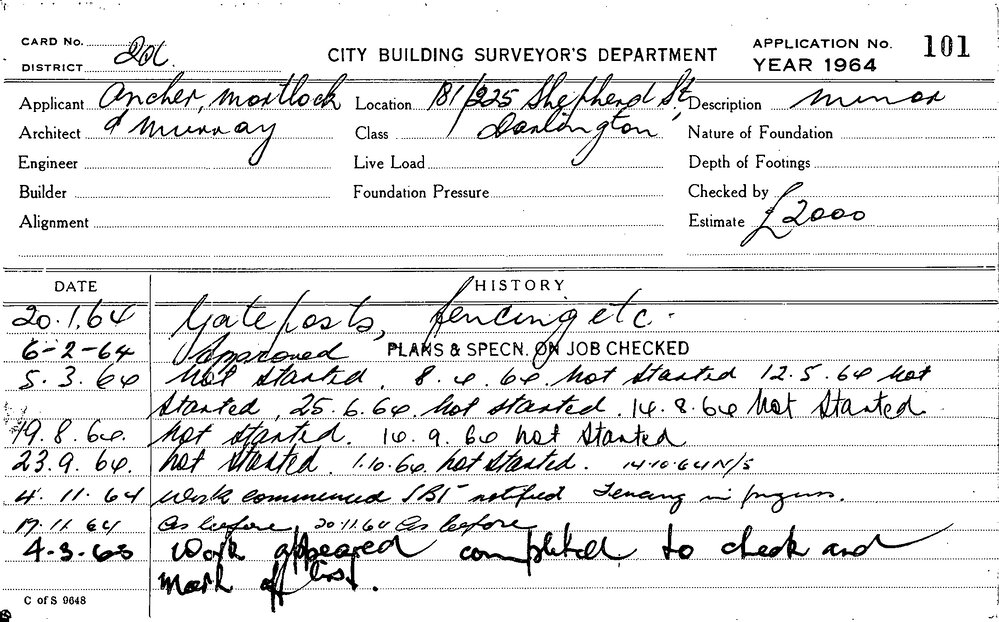 CARD No.
DISTRICT 2d.
CITY BUILDING SURVEYOR'S DEPARTMENT
APPLICATION No. 101
YEAR 1964
Applicant Ancher, Mortlock Location 181/225 Shepherd St, Description Minor
Architect & Murray Class Darlington Nature of Foundation
Engineer Live Load Depth of Footings
Builder Foundation Pressure Checked by
Alignment Estimate £2000
DATE HISTORY
20.1.64 Gate posts, fencing etc.
6-2-64 Approved PLANS & SPECN. ON JOB CHECKED
5.3.64 Not started. 8.4.64. Not started 12.5.64 Not
started, 25.6.64. Not started. 14.8.64 Not started
19.8.64. Not started. 14.9.64 Not started
23.9.64. Not started. 1.10.64. Not started. 14.10.64 N/S
4.11.64 Work commenced notified Fencing in progress.
17.11.64 As before, 20.11.64 As before
4-3-65 Work appeared completed to check and
mark off list.
C of S 9648